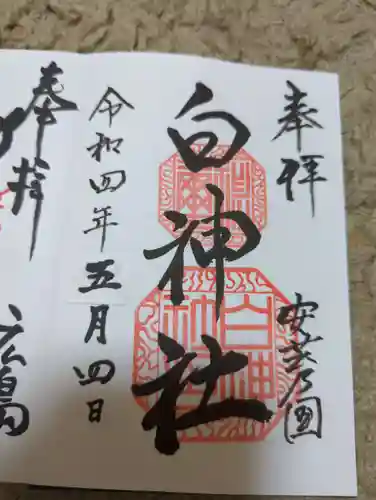 奉拝
安芸乃国
白神社
令和四年五月四日
奉拝
広島